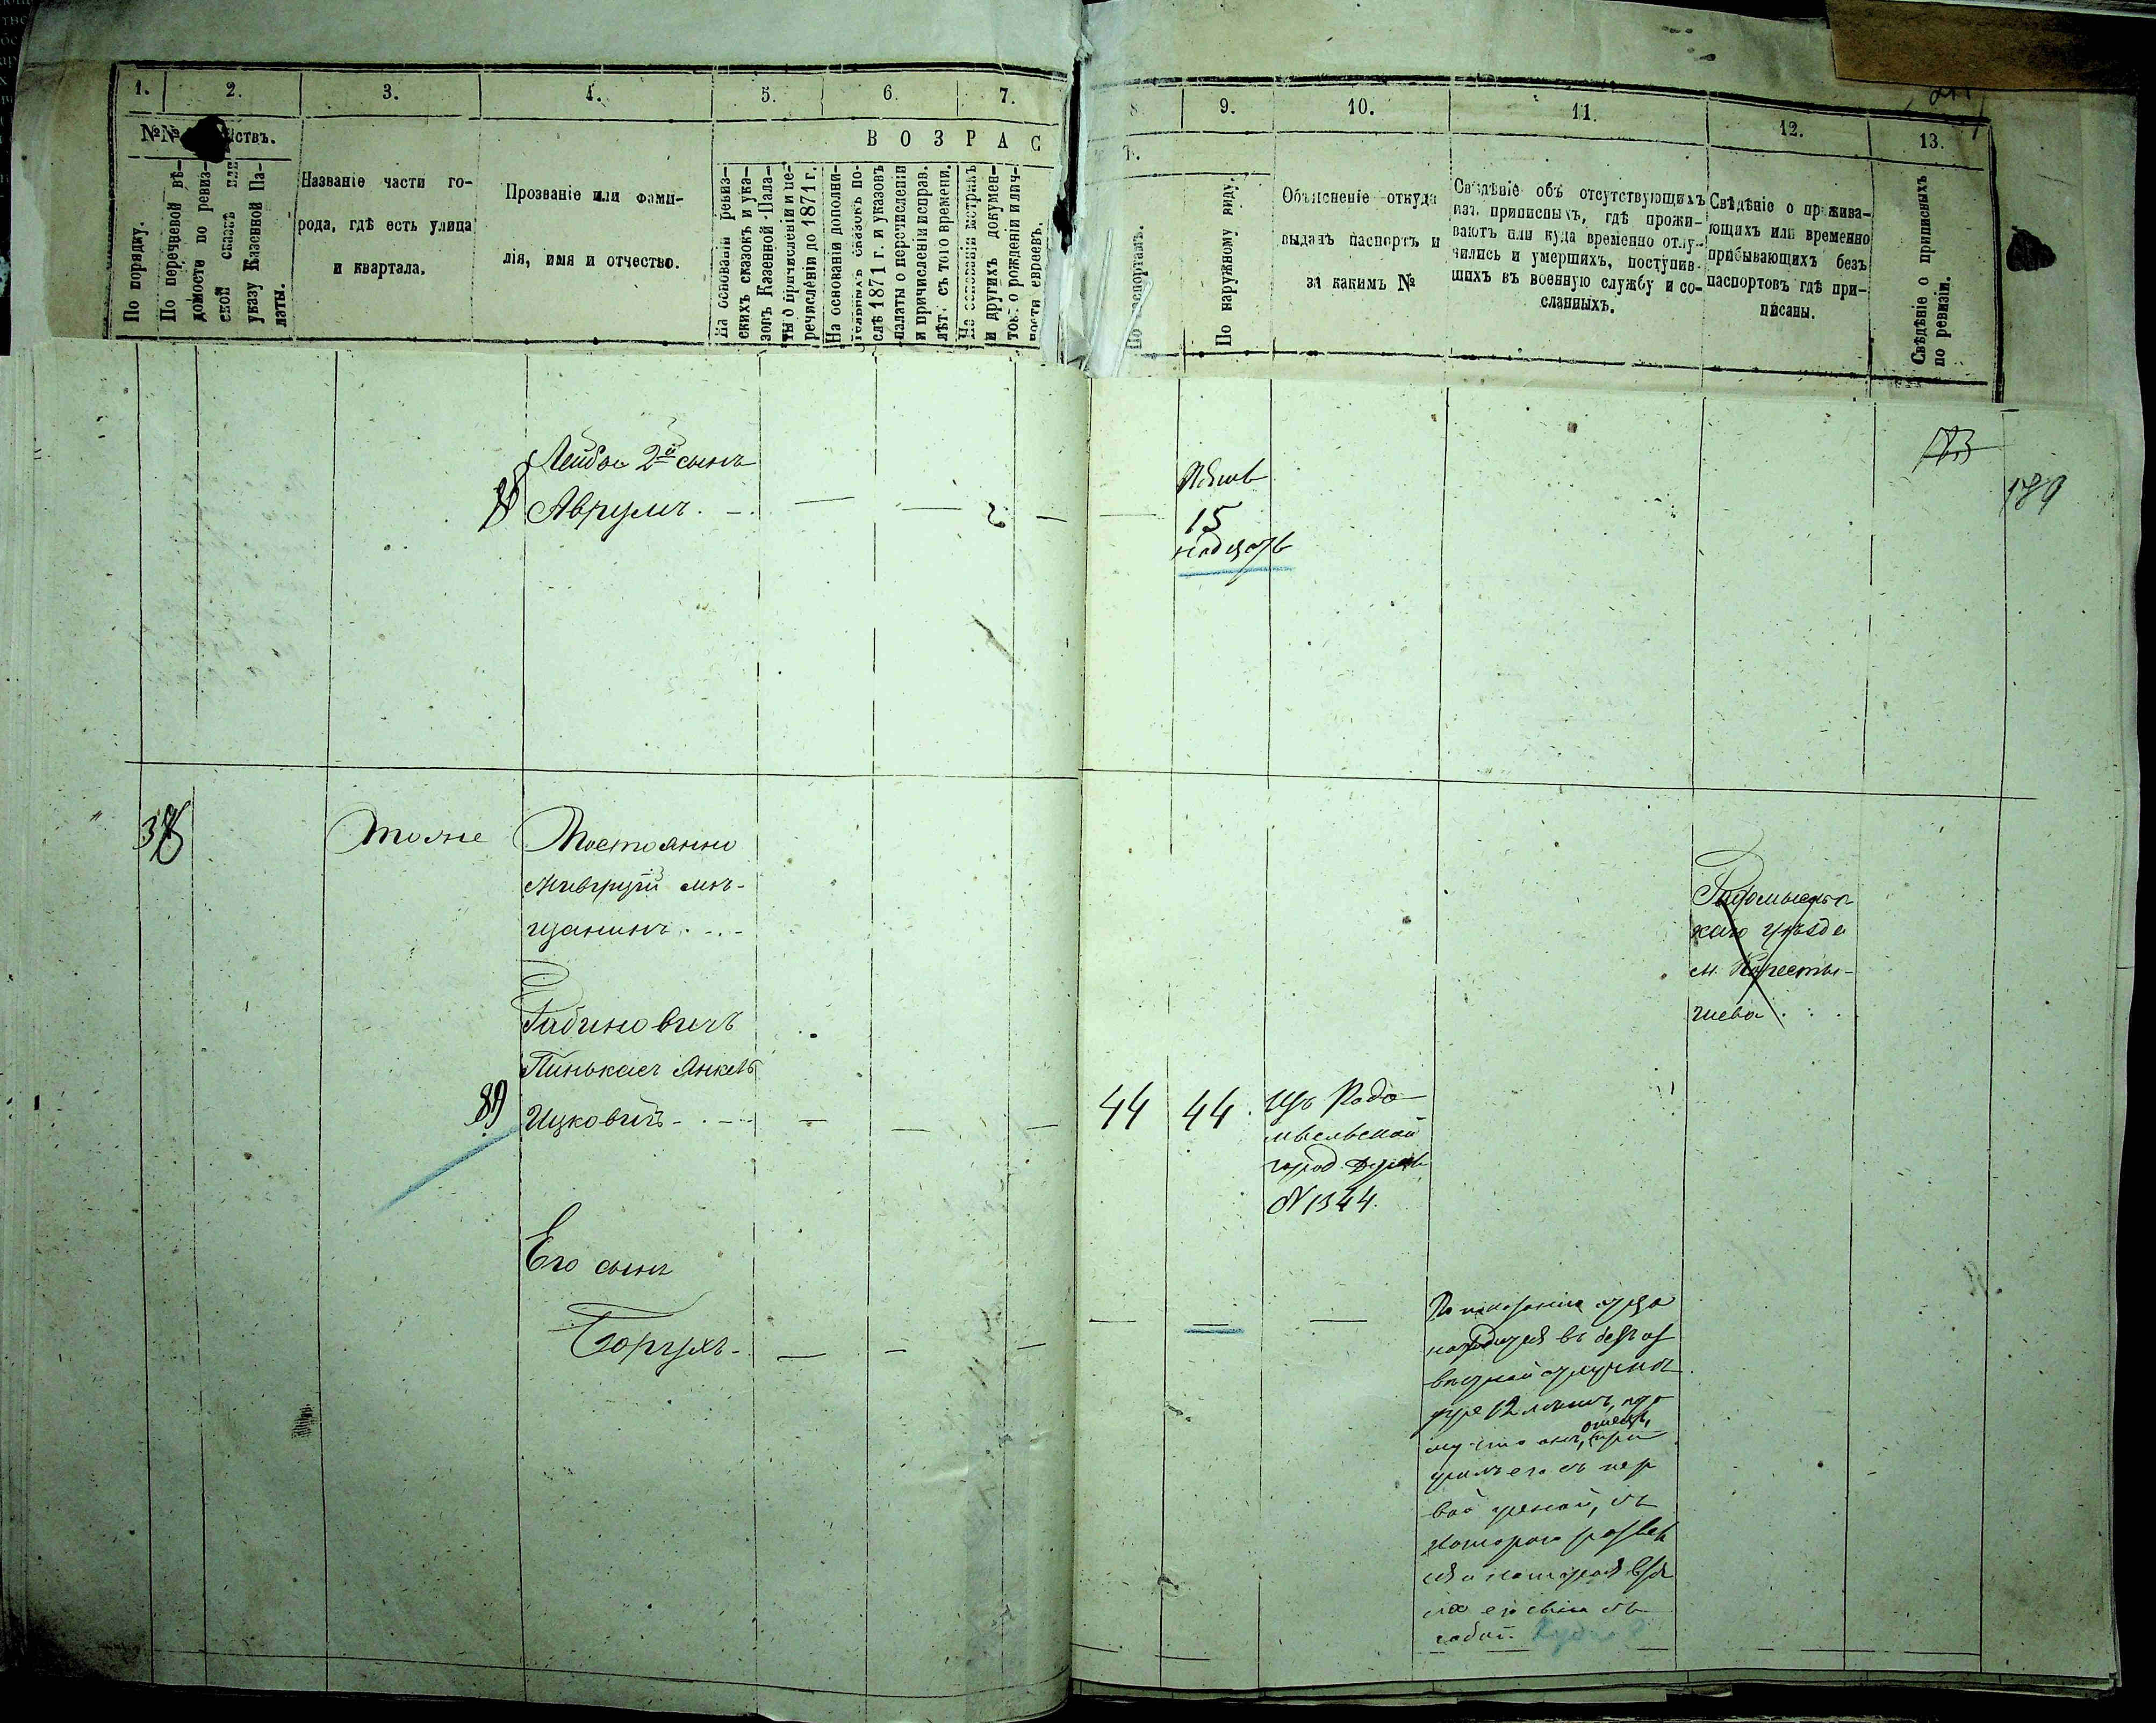 1. 2. 3. 4. 5. 6. 7.
8. 9. 10. 11. 12. 13.
№№ ствъ.
В О З Р А С
Т.
По порядку.
По перечневой вѣ-
домости по ревиз-
ской сказкѣ или
указу Казенной Па-
латы.
Названіе части го-
рода, гдѣ есть улица
и квартала.
Прозваніе или фами-
лія, имя и отчество.
На основаніи ревиз-
скихъ сказокъ и ука-
зовъ Казенной Пала-
ты о причисленіи и пе-
речисленіи до 1871 г.
На основаніи дополни-
сказокъ по-
слѣ 1871 г. и указовъ
палаты о перечисленіи
и причисленіи исправ.
лѣт. съ того времени.
На основаніи метрикъ
и другихъ докумен-
товъ о рожденіи и лич-
ности евреевъ.
По паспортамъ.
По наружному виду.
Объясненіе откуда
выданъ паспортъ и
за какимъ №
Свѣдѣніе объ отсутствующихъ
изъ приписныхъ, гдѣ прожи-
ваютъ или куда временно отлу-
чились и умершихъ, поступив-
шихъ въ военную службу и со-
сланныхъ.
Свѣдѣніе о прожива-
ющихъ или временно
прибывающихъ безъ
паспортовъ гдѣ при-
писаны.
Свѣдѣніе о приписныхъ
по ревизіи.
189
Лейба 2й сынъ
Аврумъ. —
15
38 Тоже Постоянно
живущій мѣ-
щанинъ
Рабиновичъ
Пинькасъ Янкель
89 Ицковичъ — 44 44. Изъ Радо-
мысльской
город. Думы
№ 1344.
Радомысльс-
каго уѣзда
м. Коросты-
шева
Его сынъ
Борухъ —
По показанію отца
находится въ безъиз-
вѣстной отлучкѣ
уже 12 лѣтъ, пото
му что онъ, отецъ,
его съ пер
вой женой, съ
которою развел
ся и которая взя
ла его сына съ
собой.